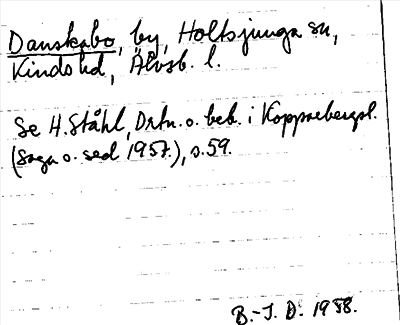 Danskabo, by, Holtsjunga sn,
Kinds hd, Älvsb. l.
Se H. Ståhl, Ortn. o. beb. i Kopparbergsl.
(Saga o. sed 1957), s. 59.
B.-J. D. 1958.